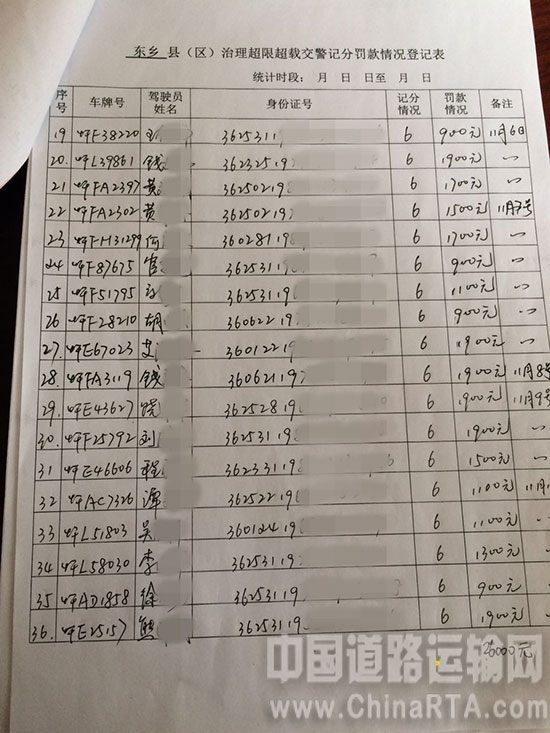 东乡 县（区）治理超限超载交警记分罚款情况登记表
统计时段： 月 日 日至 月 日
序号 车牌号 驾驶员姓名 身份证号 记分情况 罚款情况 备注
19 F38220 3625311 6 900元 11月6日
20. L39861 钱 36232519 6 1900元 〃
21 FA2397 黄 36250219 6 1700元 〃
22 FA2302 黄 36250219 6 1500元 11月7号
23 FH31299 何 36028119 6 1700元 〃
24 F87675 官 36253119 6 900元 〃
25 F51795 36253119 6 1100元 〃
26 F28210 胡 36062219 6 900元 〃
27. E67023 艾 36012219 6 1900元 〃
28. FA3119 钱 36062119 6 1900元 11月8号
29. E43627 饶 36252819 6 1900元 11月9号
30. F25792 刘 36253119 6 1900元
31 E46606 程 36233119 6 1500元
32 AC7326 谭 36252219 6 1100元 11月
33 L51803 吴 36012419 6 1100元
34 L58030 李 36253119 6 1300元
35 AD1858 徐 36253119 6 900元
36. E25157 熊 36253119 6 1900元
26000元
中国道路运输网
www.ChinaRTA.com